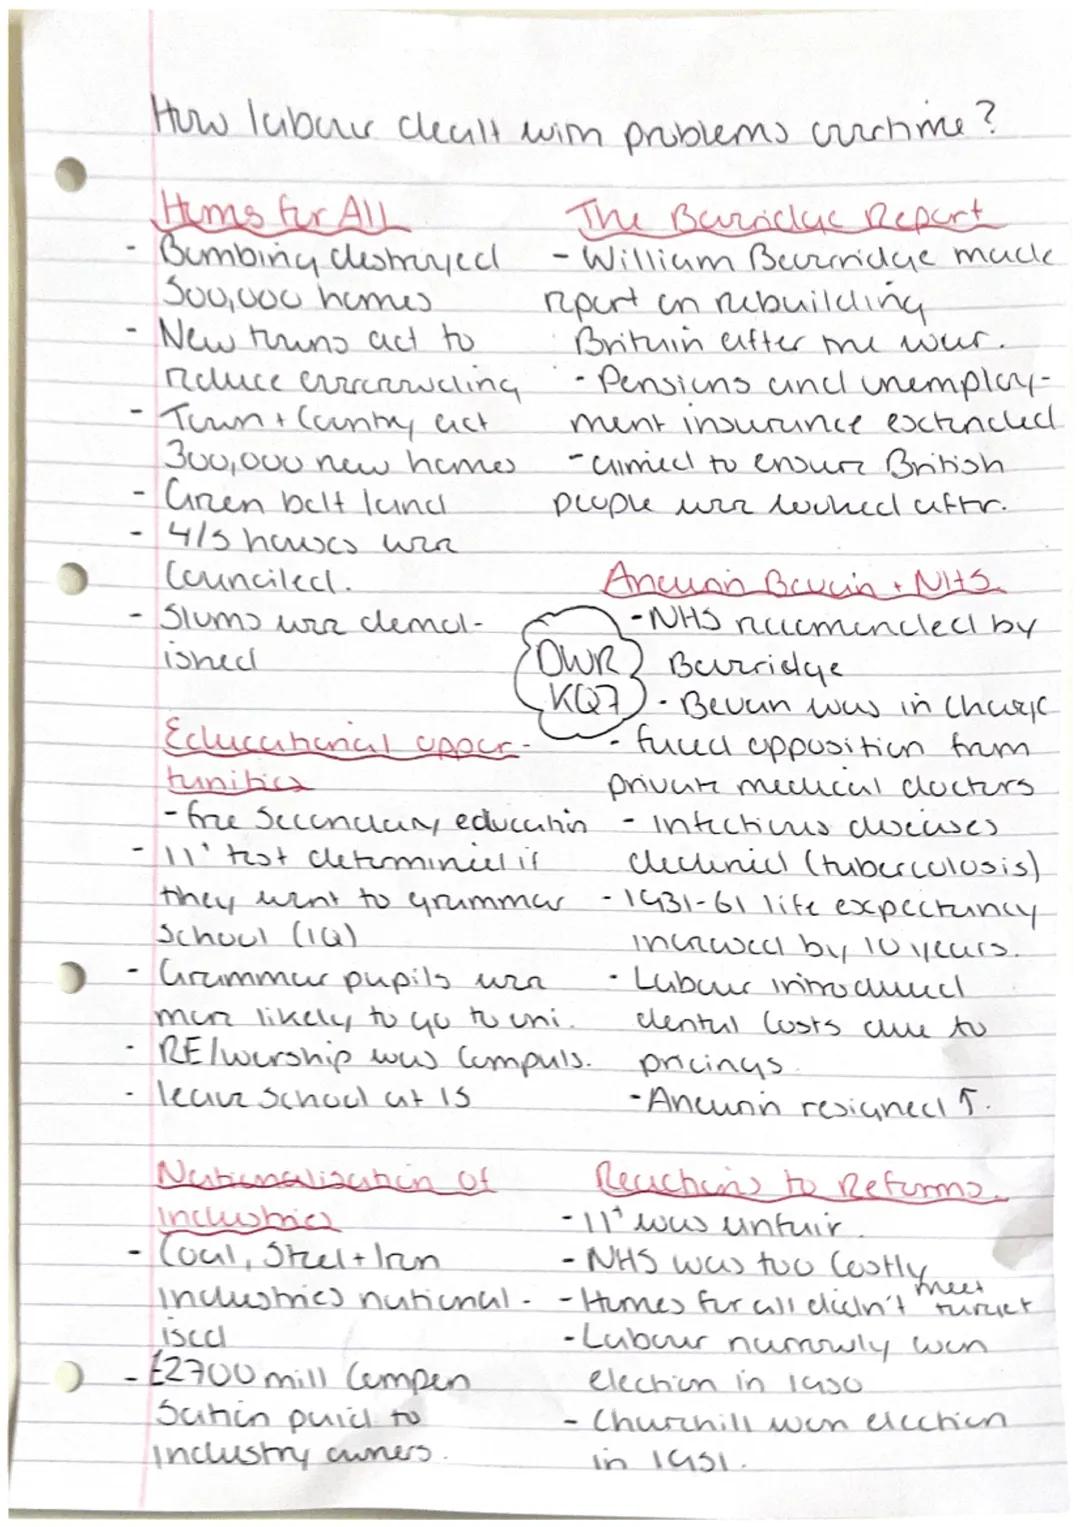 How labour dealt with problems overtime?
Homes for All
- Bombing destroyed
500,000 homes
- New towns act to
reduce overcrowding
- Town + Country act
300,000 new homes
- Green belt land
- 4/5 houses were
Counciled.
- Slums were demol-
ished
Educational oppor-
tunities
- free Secondary education
- 11+ test determined if
they went to grammar
School (IQ)
- Grammar pupils were
more likely to go to uni.
- RE/worship was Compuls.
- leave school at 15
Nationalisation of
industries
- Coal, Steel + Iron
industries national-
ised
- £2700 mill Compen
sation paid to
industry owners.
The Beveridge Report
- William Beverridge made
report on rebuilding
Britain after the war.
- Pensions and unemploy-
ment insurance extended
- aimed to ensure British
people were looked after.
Aneurin Bevan + NHS.
- NHS recommended by
Beverridge
OWR
KQ7
- Bevan was in charge
- faced opposition from
private medical doctors
- Infectious diseases
declined (tuberculosis)
- 1931-61 life expectancy
increased by 10 years.
- Labour introduced
dental costs due to
pricings.
- Aneurin resigned ↑.
Reactions to Reforms.
- 11+ was unfair.
- NHS was too Costly
- Homes for all didn't meet target
- Labour narrowly won
election in 1950
- Churchill won election
in 1951.